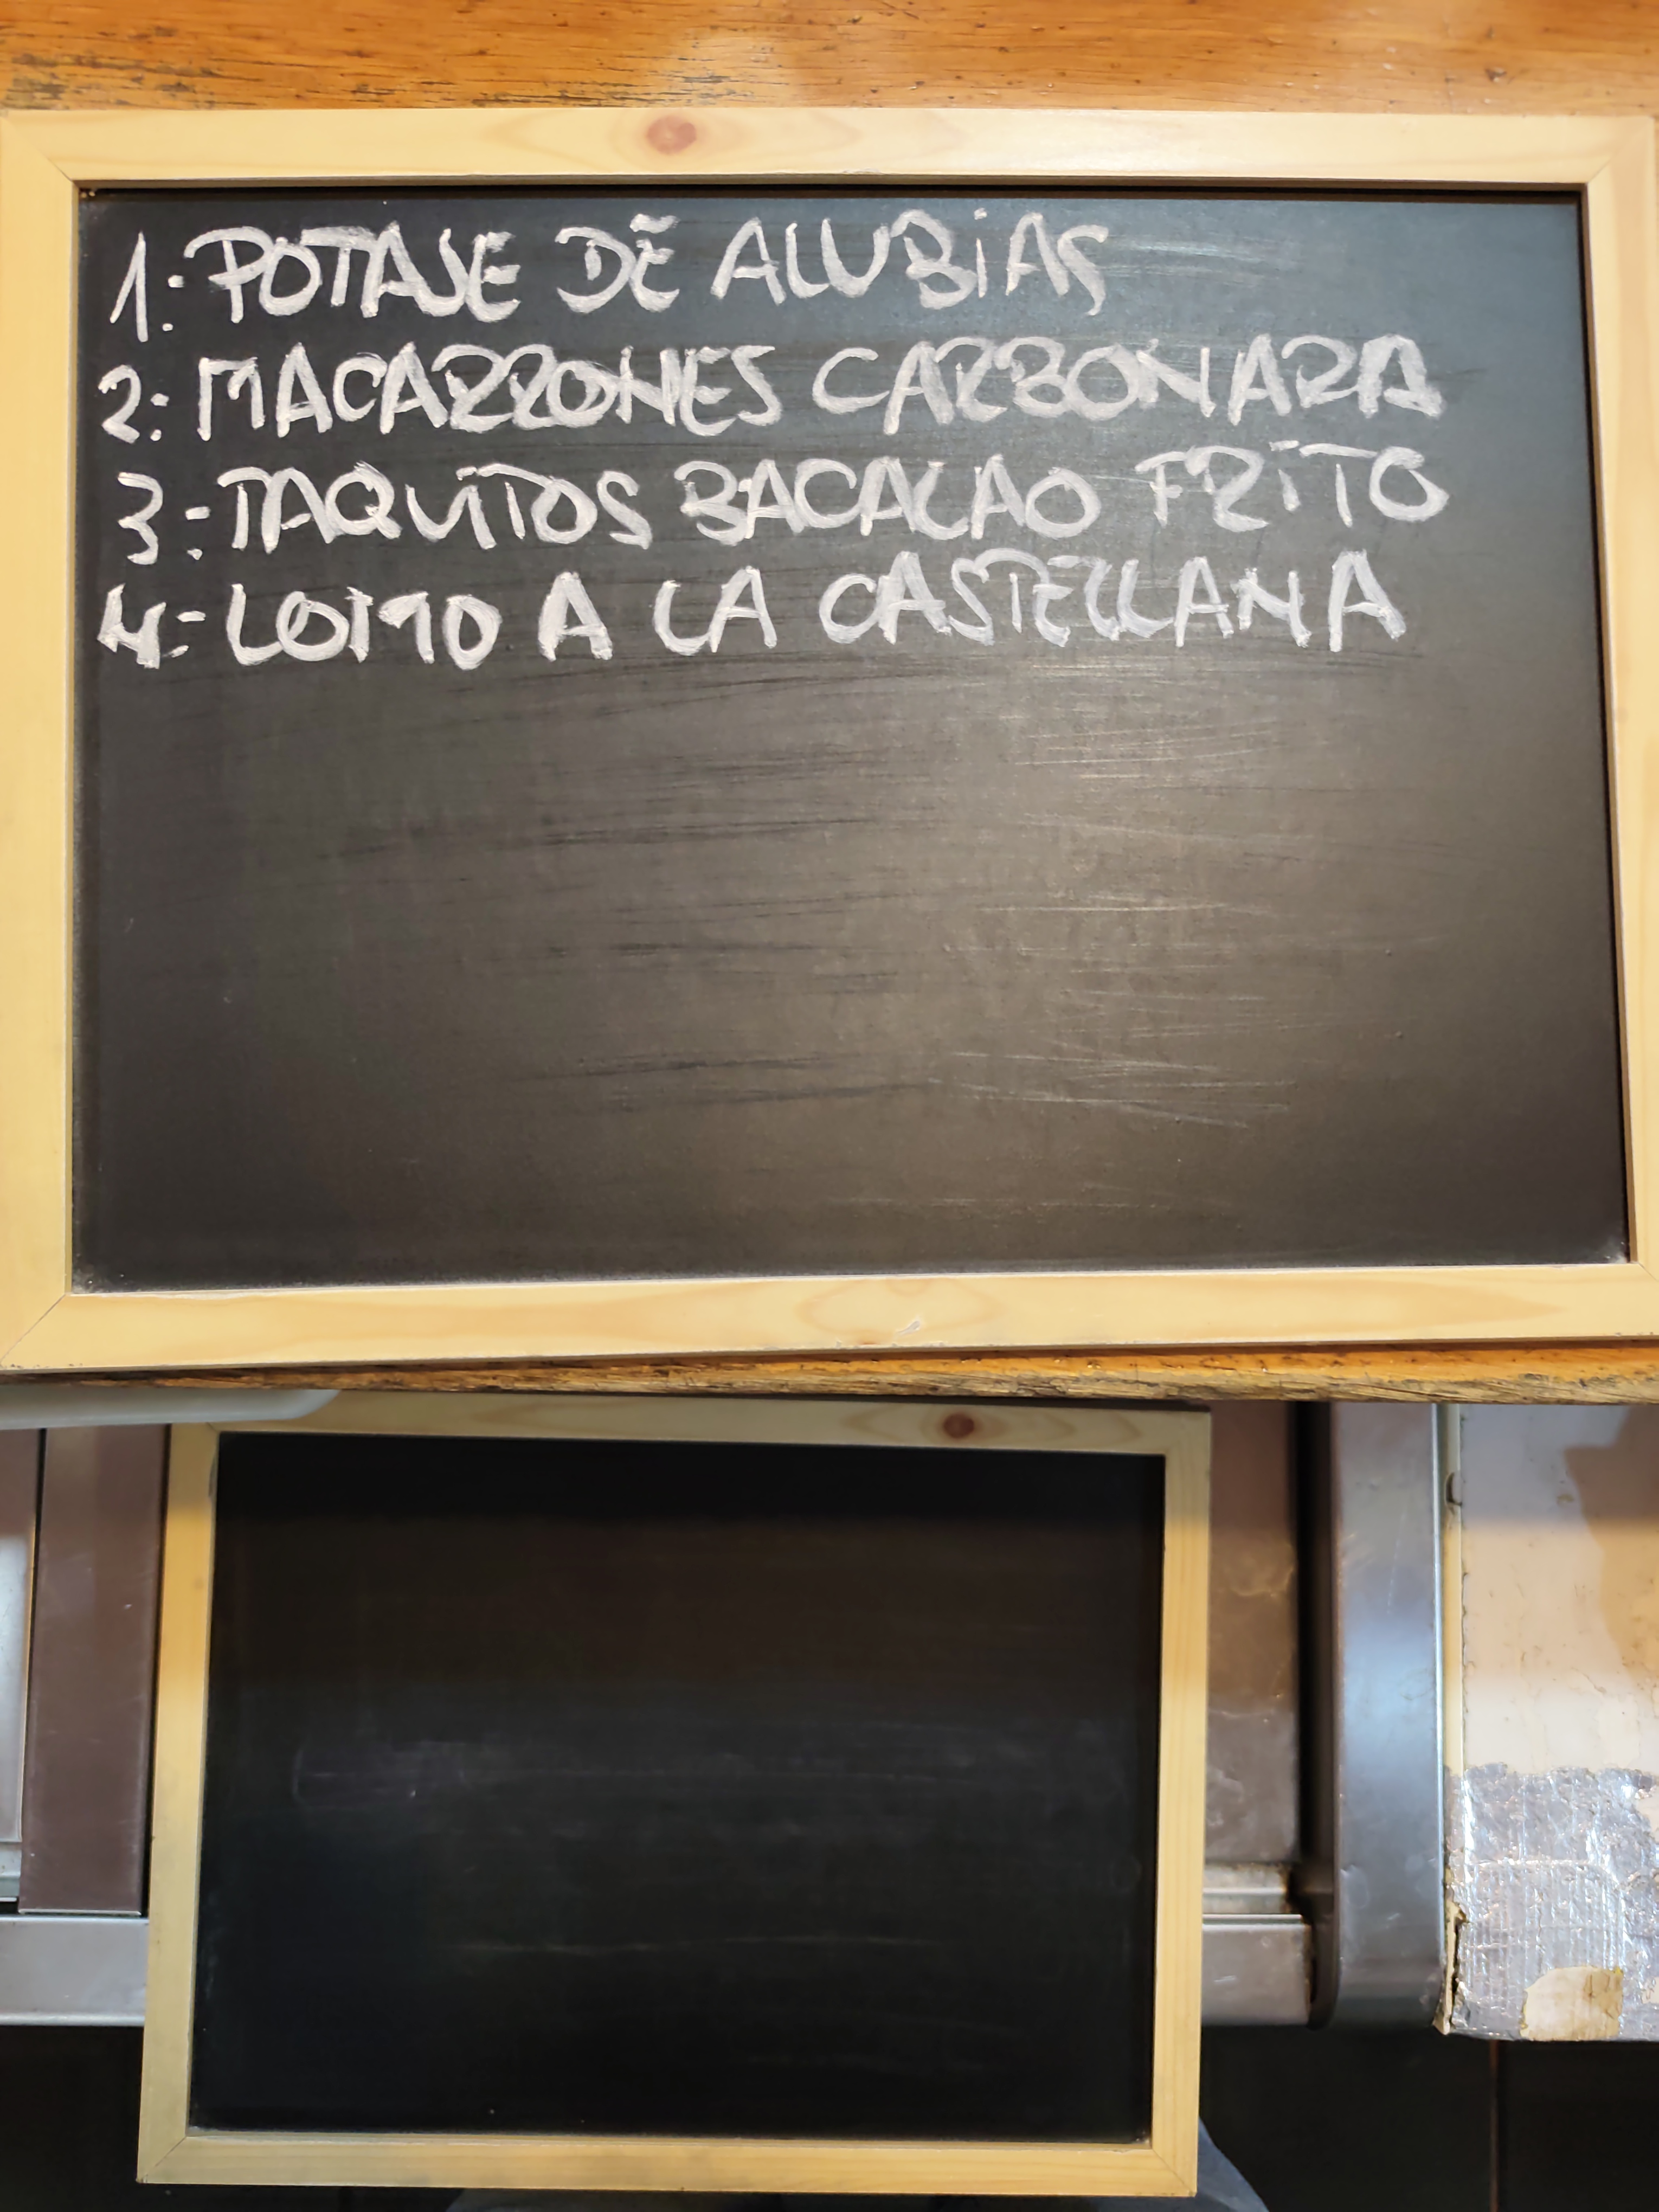 1: POTAJE DE ALUBIAS
2: MACARRONES CARBONARA
3: TAQUITOS BACALAO FRITO
4: LOMO A LA CASTELLANA